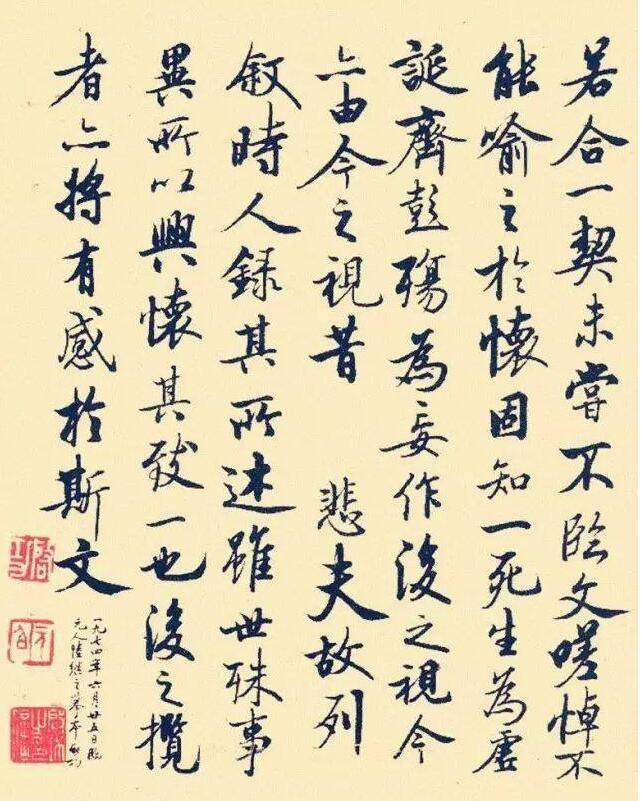 若合一契未甞不臨文嗟悼不
能喻之於懷固知一死生為虛
誕齊彭殤為妄作後之視今
亦由今之視昔 悲夫故列
敘時人錄其所述雖世殊事
異所以興懷其致一也後之攬
者亦將有感於斯文
一九七四年六月廿五日臨
元人陸繼之摹本